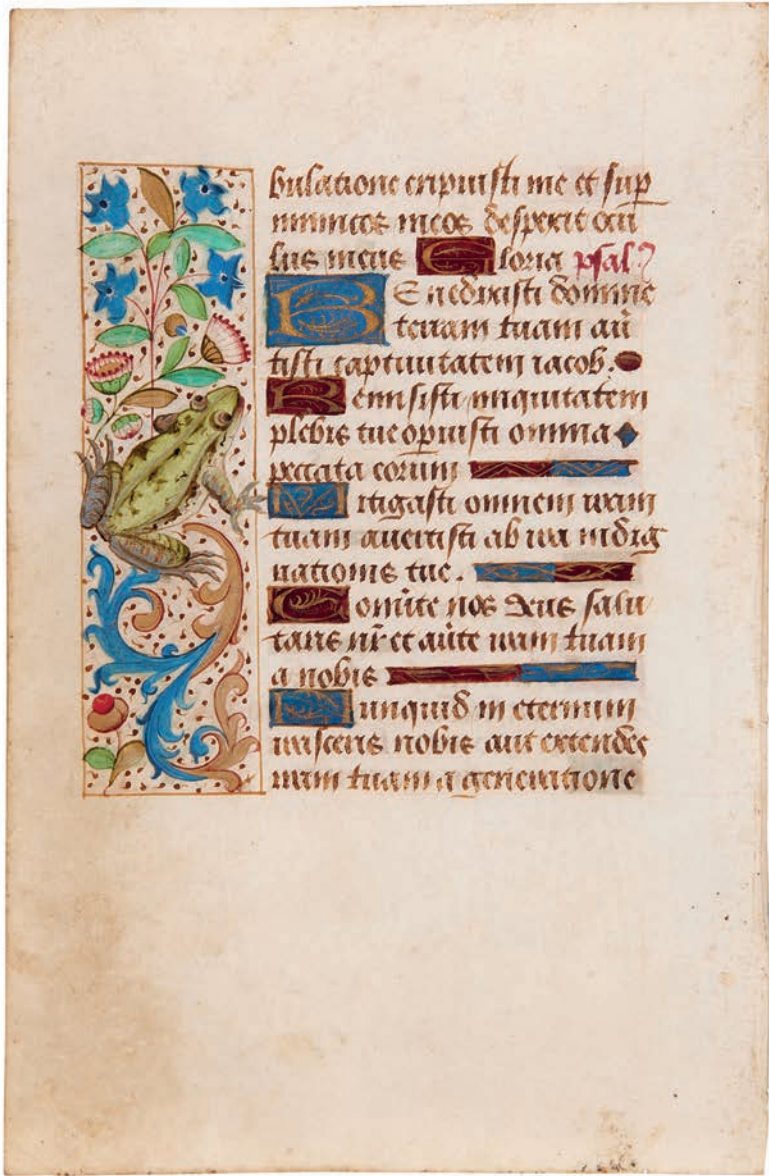 bulatione eripuisti me et sup
inimicos meos despexit ocu
lus meus Gloria psal
BEnedixisti domine
terram tuam au̅
tisti captiuitatem iacob.
Remisisti iniquitatem
plebis tue operuisti omnia
peccata eorum
Mitigasti omnem iram
tuam auertisti ab ira indig
nationis tue.
Conu̅te nos deus salu
taris nr̅ et au̅te iram tuam
a nobis
Nunquid in eternum
irasceris nobis aut extendes
iram tuam a generatione